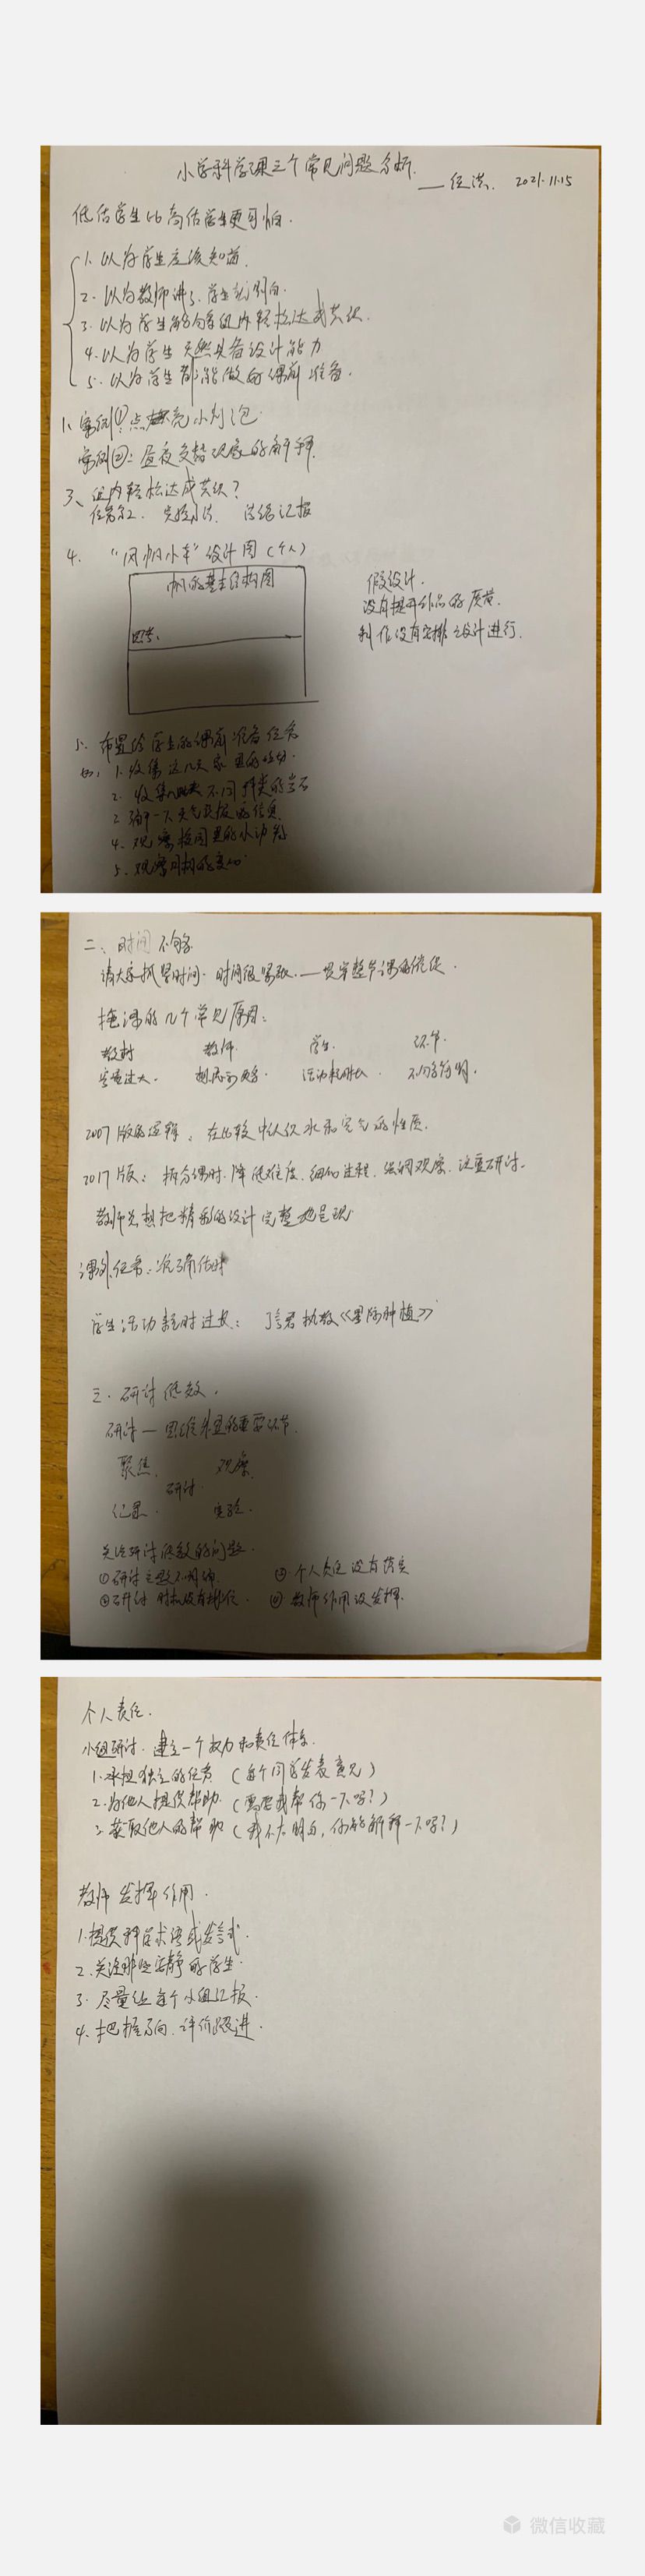 小学科学课三个常见问题分析.
2021.11.15
低估学生比高估学生更可怕.
1. 以为学生应该知道.
2. 以为教师讲了,学生就明白.
3. 以为学生能够在组内轻松达成共识.
4. 以为学生天然具备设计能力
5. 以为学生都能做好课前准备.
1、案例①:点亮小灯泡
案例②:昼夜交替现象的解释.
3、组内轻松达成共识?
任务分工. 实验方法. 总结汇报
4. “风帆小车”设计图(个人)
帆的基本结构图
思考:
假设计.
没有提升作品的质量.
制作没有安排之设计进行.
5. 布置给学生的课前准备任务
如: 1. 收集这几天家里的垃圾.
2. 收集不同种类的岩石
一天天气预报的信息.
4. 观察校园里的小动物
5. 观察月相的变化.
二、时间不够
请大家抓紧时间. 时间很紧张. —贯穿整节课的催促.
拖课的几个常见原因:
教材 教师 学生. 环节.
容量过大. 活动耗时长.
2007版的逻辑: 在比较中认识水和空气的性质.
2017版: 拆分课时. 降低难度. 细化过程. 强调观察. 注重研讨.
教师总想把精彩的设计完整地呈现
学生活动耗时过长:
三. 研讨低效.
研讨—思维外显的重要环节.
聚焦. 观察.
研讨.
记录. 实验.
关注研讨低效的问题.
①研讨主题不明确. 个人责任没有落实
②研讨时机没有排位. ④ 教师作用没发挥.
个人责任.
小组研讨. 建立一个权力和责任体系.
1. 承担独立的任务 (每个同学发表意见)
2. 为他人提供帮助. (需要我帮你一下吗?)
3. 获取他人的帮助 (我不太明白, 你能解释一下吗?)
教师发挥作用.
1. 提供科学术语或发言式.
2. 关注那些安静的学生.
3. 尽量让每个小组汇报.
4. 把握方向. 评价跟进.
微信收藏